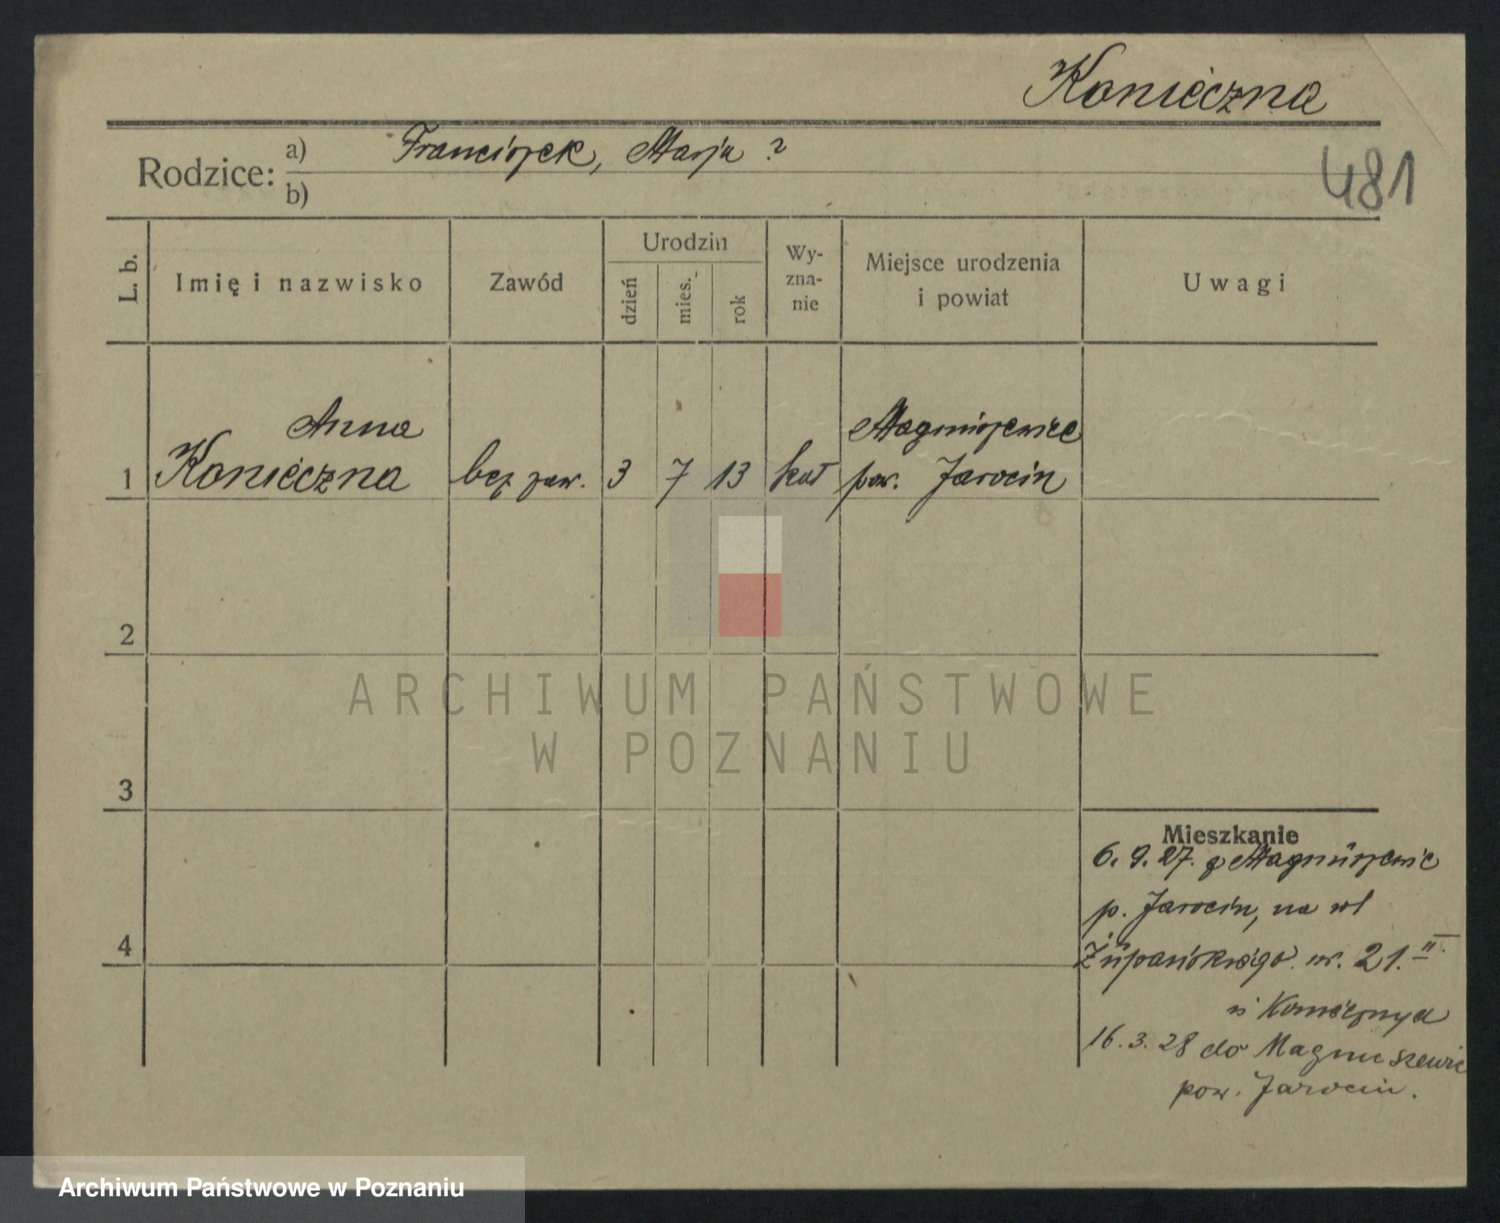 Konieczna
Rodzice: a) Franciszek, Marja ?
b)
481
L. b.
Imię i nazwisko
Zawód
Urodzin
dzień
mies.
rok
Wy-
zna-
nie
Miejsce urodzenia
i powiat
Uwagi
1
Anna
Konieczna
bez zaw.
3
7
13
kat
Magnuszewice
pow. Jarocin
2
3
4
ARCHIWUM PAŃSTWOWE
W POZNANIU
Mieszkanie
6. 9. 27. z Magnuszewic
p. Jarocin, na ul
Żupańskiego nr. 21. II.
u Koniecznych
16. 3. 28 do Magnuszewic
pow. Jarocin.
Archiwum Państwowe w Poznaniu